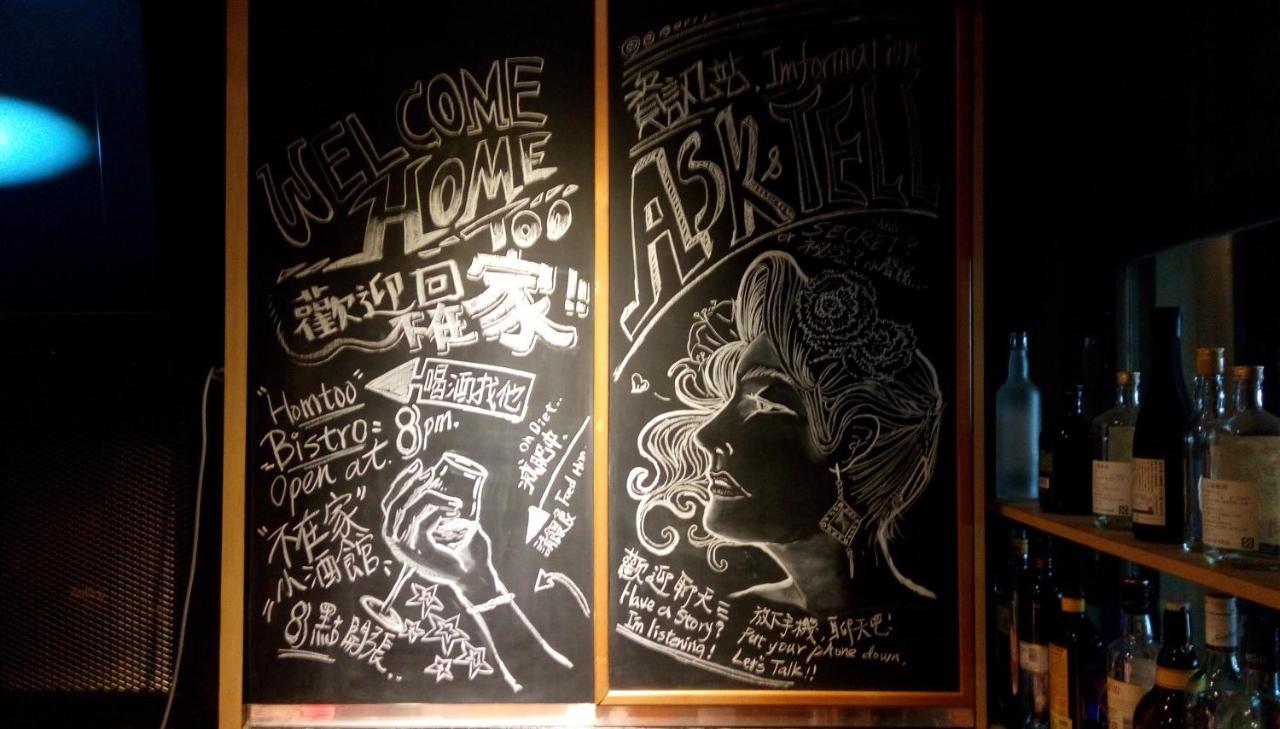 WELCOME
HOME
TOO
歡迎回
不在家!!
喝酒找他
"Homtoo"
"Bistro"
Open at. 8pm.
"不在家"
"小酒館"
8點開張..
on Diet..
減肥中.
請餵食 Feed Him
資訊站. Imformation
ASK & TELL
or SECRET?
秘密?小聲說...
歡迎聊天
Have a story?
I'm listening!
放下手機,聊天吧!
Put your phone down,
Let's Talk!!